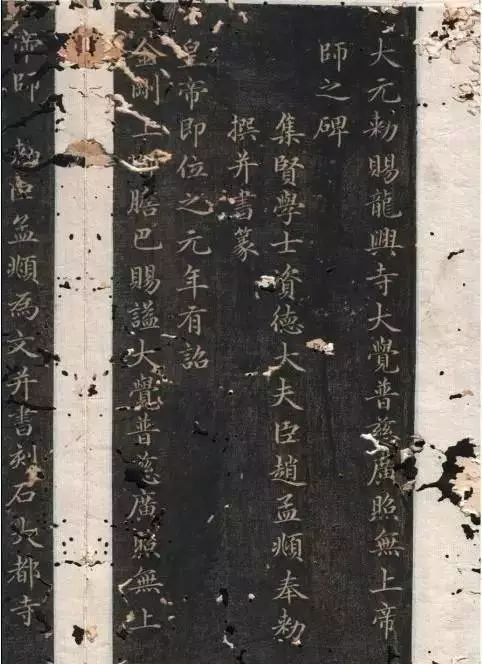 大元勑賜龍興寺大覺普慈廣照無上帝
師之碑
集賢學士資德大夫臣趙孟頫奉勑
撰并書篆
皇帝即位之元年有詔
金剛上師膽巴賜謚大覺普慈廣照無上
帝師 勑臣孟頫為文并書刻石大都寺